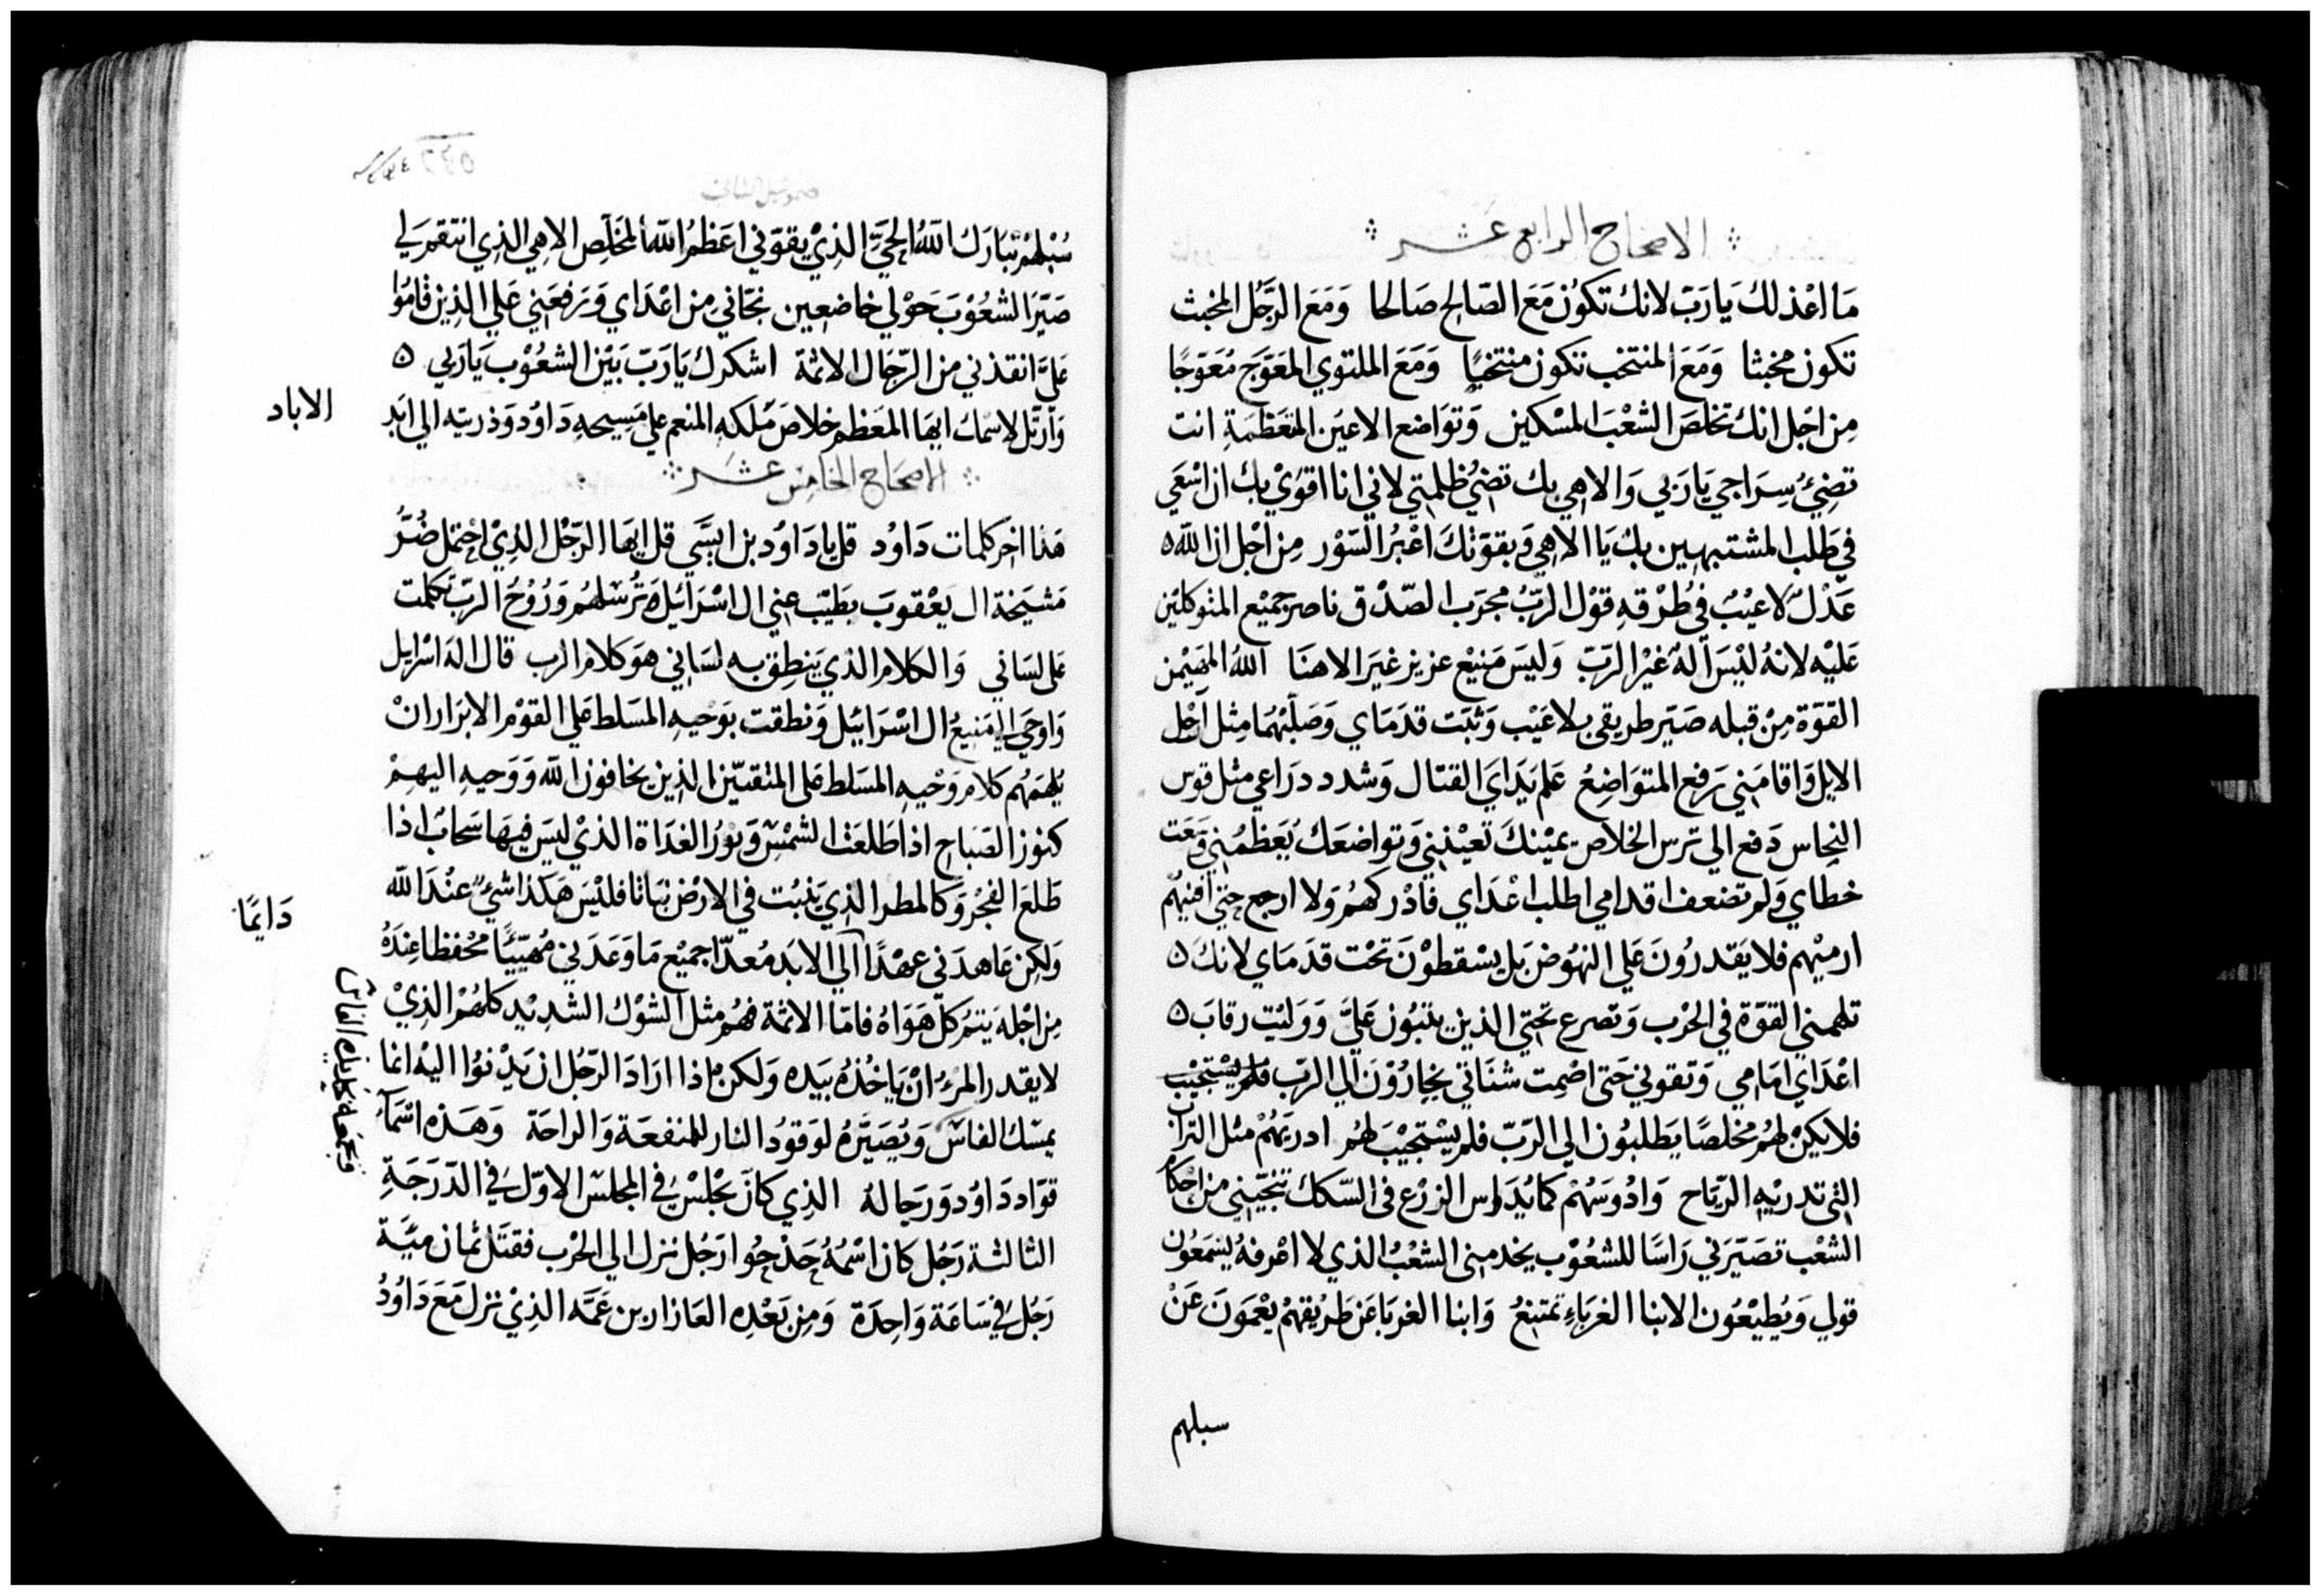 الاصحاح الرابع عشر
ما اعذلك يا رب لانك تكون مع الصالح صالحا ومع الرجل المخبث
تكون مخبثا ومع المنتخب تكون منتخبا ومع الملتوي المعوج معوجا
من اجل انك تخلص الشعب المسكين وتواضع الاعين المتعظمة انت
تضئ سراجي يا ربي والاهي بك تضئ ظلمتي لاني انا اقوي بك ان اسعي
في طلب المشتبهين بك يا الاهي وبقوتك اعبر السور من اجل ان الله ٥
عدل لا عيب في طرقه قول الرب مجرب الصدق ناصر جميع المتوكلين
عليه لانه ليس اله غير الرب وليس منيع عزيز غير الاهنا الله المهيمن
القوة من قبله صير طريقي بلا عيب وثبت قدماي وصلبهما مثل ارجل
الايل واقامني رفع المتواضع علم يداي القتال وشدد دراعي مثل قوس
النحاس دفع الي ترس الخلاص يمينك تعينني وتواضعك يعظمني وسعت
خطاي ولم تضعف اقدامي اطلب اعداي فادركهم ولا ارجع حتي افنيهم
ارميهم فلا يقدرون علي النهوض بل يسقطون تحت قدماي لانك ٥
تلهمني القوة في الحرب وتصرع تحتي الذين يثبون علي ووليت رقاب ٥
اعداي امامي وتقوني حتي اصمت شناتي يجارون الي الرب فلم يستجيب
فلا يكن لهم مخلصا يطلبون الي الرب فلم يستجيب لهم ادريهم مثل التراب
التي تدريه الرياح وادوسهم كما يداس الزرع في السكك تنجيني من احكام
الشعب تصيرني راسا للشعوب يخدمني الشعب الذي لا اعرفه يسمعون
قولي ويطيعون الابنا الغرباء تمتنع وابنا الغربا عن طريقهم يعمون عن
سبلهم
صموييل الثاني
سبلهم تبارك الله الحي الذي يقوني اعظم الله المخلص الاهي الذي انتقم لي
صير الشعوب حولي خاضعين نجاني من اعداي ورفعني علي الذين قاموا
علي انقذني من الرجال الاثمة اشكرك يا رب بين الشعوب يا ربي ٥
وارتل لاسمك ايها المعظم خلاص ملكه المنعم علي مسيحه داود وذريته الي ابد
الاباد
الاصحاح الخامس عشر
هذا اخر كلمات داود قل يا داود بن ايسي قل ايها الرجل الذي احتمل ضر
مشيخة ال يعقوب بطيب عني ال اسرائيل ترسلهم وروح الرب تكلمت
علي لساني والكلام الذي ينطق به لساني هو كلام الرب قال اله اسرايل
واوحي الي منيع ال اسراييل ونطقت بوحيه المسلط علي القوم الابرار ان
يلهمهم كلام وحيه المسلط علي المتقيين الذين يخافون الله ووحيه اليهم
كنوز الصباح اذا طلعت الشمس ونور الغداة الذي ليس فيها سحاب اذا
طلع الفجر وكالمطر الذي ينبت في الارض نباتا فليس هكذا شئ عند الله
دايما
ولكن عاهدني عهدا الي الابد معدا جميع ما وعدني مهييا محفظا عنده
من اجله يتم كل هواه فاما الاثمة فهم مثل الشوك الشديد كلهم الذي
لا يقدر المرء ان ياخذه بيده ولكن ماذا اراد الرجل ان يدنوا اليه انما
يمسك الفاس ويصيره لوقود النار للمنفعة والراحة وهذه اسماء
قواد داود ورجاله الذي كان يجلس في المجلس الاول في الدرجة
الثالثة رجل كان اسمه حذحوا رجل نزل الي الحرب فقتل ثمان مية
رجل في ساعة واحدة ومن بعده العازار بن عمه الذي نزل مع داود